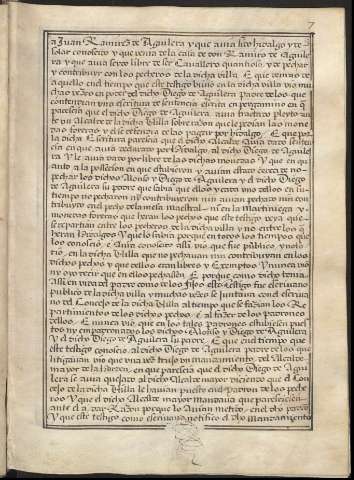 7
a Juan Ramirez de Aguilera y que auia sido hidalgo y de
solar conoscido y que venia de la casa de don Ramiro de Aguile
ra y que auia seydo libre de ser Cauallero quantioso, y de pechar
y contribuyr con los pecheros de la dicha villa. E que demas de
aquello en el tiempo que este testigo biuio en la dicha villa vio mu
chas vezes en poder del dicho Diego de Aguilera padre de los que
contendian vna escritura de sentencia escrita en pergamino en q
parescia que el dicho Diego de Aguilera auia traydo pleyto an
te vn Alcalde de la dicha Villa sobre razon que le pedian las mone
das foreras y el se defendia de las pagar por hidalgo, E que por
la dicha Escritura parescia que el dicho Alcalde auia dado senten
cia en que auia declarado por hidalgo al dicho Diego de Aguile
ra Y le auia dado por libre de las dichas monedas Y que en qu
anto a la possession en que estubieron y auian estado cerca de no
pechar los dichos Alonso y Diego de Aguilera y el dicho Diego
de Aguilera su padre que sabia que ellos y cada vno dellos en su
tiempo no pecharon ni contribuyeron nin auian pechado nin con
tribuydo en el pecho de la mesa maestral ni en la Martiniega y
monedas foreras que heran los pechos que este testigo veya que
se repartian entre los pecheros de la dicha villa y no entre los q
heran hidalgos Y que lo sabia porque en todos los tiempos que
los conoscio, e auia conoscido assi vio que fue publico, y noto
rio, en la dicha Villa que no pechauan nin contribuyan en los
dichos pechos y que dellos eran libres y Exemptos Y nunca vio
ny oyo dezir que en ellos pechassen. E porque como dicho tenia
assi en vida del padre como de los fijos este testigo fue escriuano
publico de la dicha villa y muchas vezes se juntaua con el escriua
no del Concejo de la dicha Villa al tiempo que se fazian los Re
partimientos de los dichos pechos, E al fazer de los padrones
dellos, E nunca vio que en los tales Padrones estubiesen pues
tos ny empadronados los dichos Alonso y Diego de Aguilera
Y el dicho Diego de Aguilera su padre. E que en el tiempo que
este testigo conoscio al dicho Diego de Aguilera padre de los que
litigauan vio que vna vez truxo vn mandamiento del Alcalde
mayor de la horden, en que parescia que el dicho Diego de Agui
lera se auia quexado al dicho Alcalde mayor diziendo que el Con
cejo de la dicha Villa le hauian puesto en el Padron de los peche
ros Y que el dicho Alcalde mayor mandaua que paresciesen
ante el a dar Razon porque lo Auian metido en el dicho padron
Y que este testigo como escriuano notifico el dicho Mandamiento